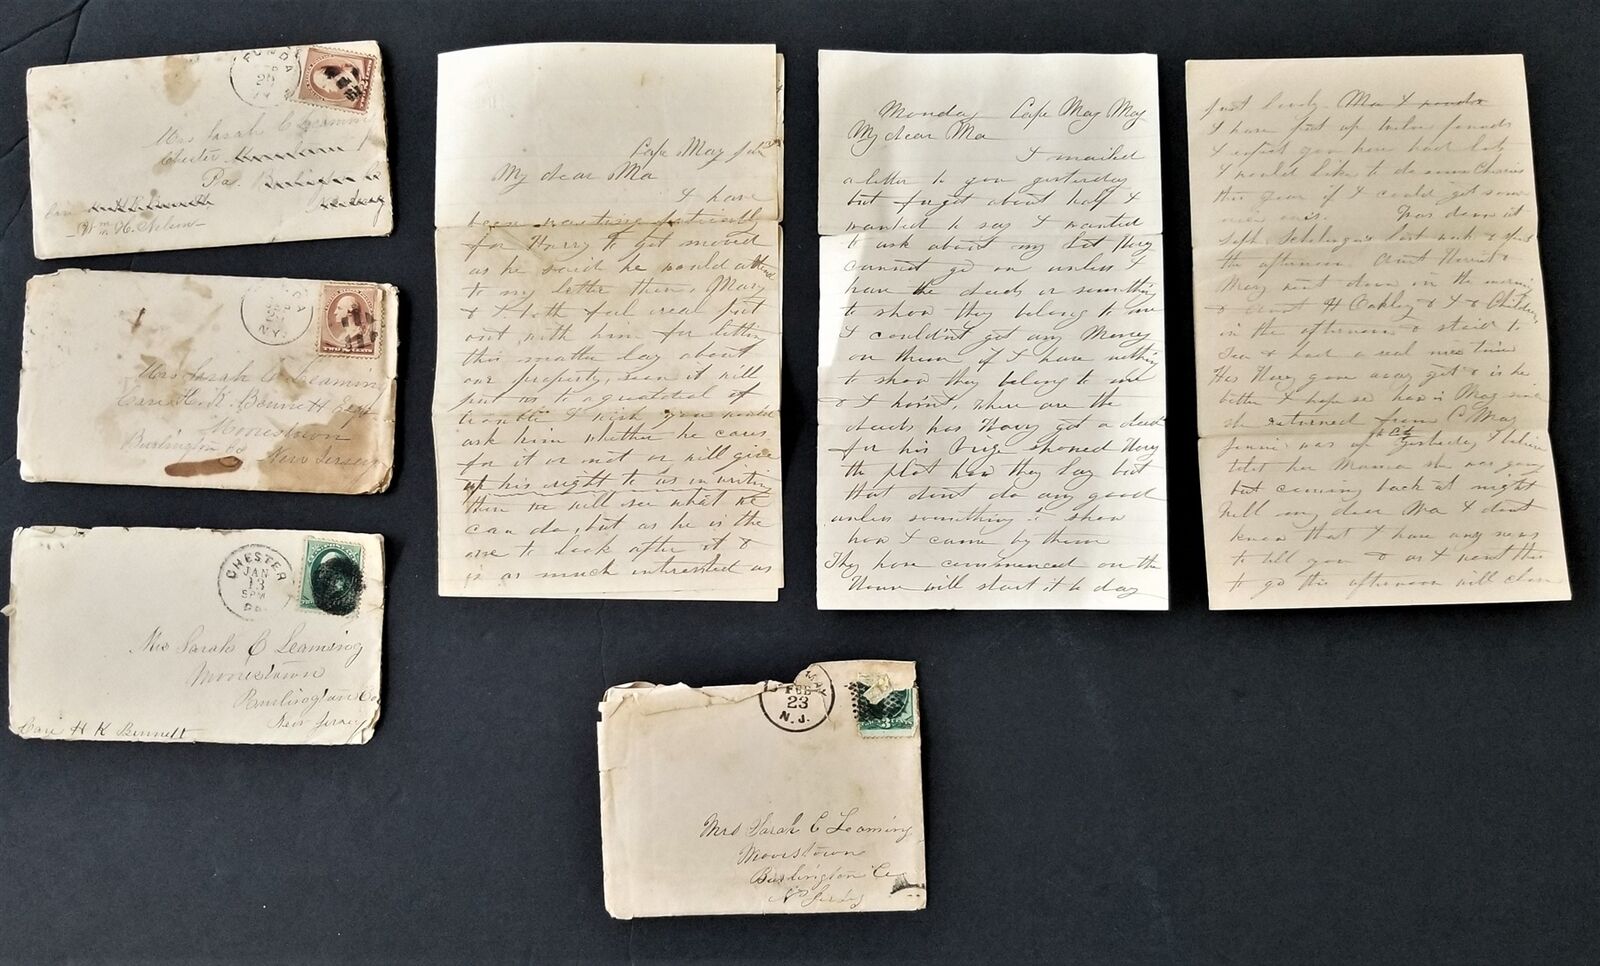 FONDA
25
N.Y.
Mrs Sarah C Leaming
Chester
Pa.
Care
Wm H. Nelson
N.Y.
TWO CENTS
Mrs Sarah C Leaming
Care H. K. Bennett Esqr
Moorestown
Burlington Co
New Jersey
CHESTER
JAN
13
5PM
PA.
Mrs Sarah C Leaming
Moorestown
Burlington Co
New Jersey
Care H K Bennett
Cape May Jan
My dear Ma
I have
been waiting patiently
for Harry to get moved
as he said he would attend
to my letter then, Mary
& I both feel real put
out with him for letting
this matter lay about
our property, soon it will
put us to a great deal of
trouble I wish you would
ask him whether he cares
for it or not or will give
up his right to us in writing
then we will see what we
can do, but as he is the
one to look after it &
is as much interested as
Monday Cape May May
My dear Ma
I mailed
a letter to you yesterday
but forgot about half I
wanted to say I wanted
to ask about my lot Harry
cannot go on unless I
have the deeds or something
to show they belong to me
I couldn't get any Money
on them if I have nothing
to show they belong to me
& I haint, where are the
deeds has Harry got a deed
for his Brige showed Harry
the plot how they lay but
that dont do any good
unless something to show
how I came by them
They have commenced on the
House will start it to day
just lovely Ma I
I have put up twelve pounds
I expect you have had lots
I would like to do some Cherries
this year if I could get some
nice ones. Was down it
Seph. last week & spent
the afternoon Aunt Harriet &
Mary went down in the morning
& Aunt H Oakley & I & Children
in the afternoon & staid to
Tea & had a real nice time
Has Harry gone away yet & is he
better I hope so how is May since
she returned from C May
Jennie was up yesterday I believe
told her Mama she was going
but coming back at night
Well my dear Ma I dont
know that I have any news
to tell you & as I want this
to go this afternoon will close
MAY
FEB
23
N.J.
Mrs Sarah C Leaming
Moorestown
Burlington Co
N Jersey